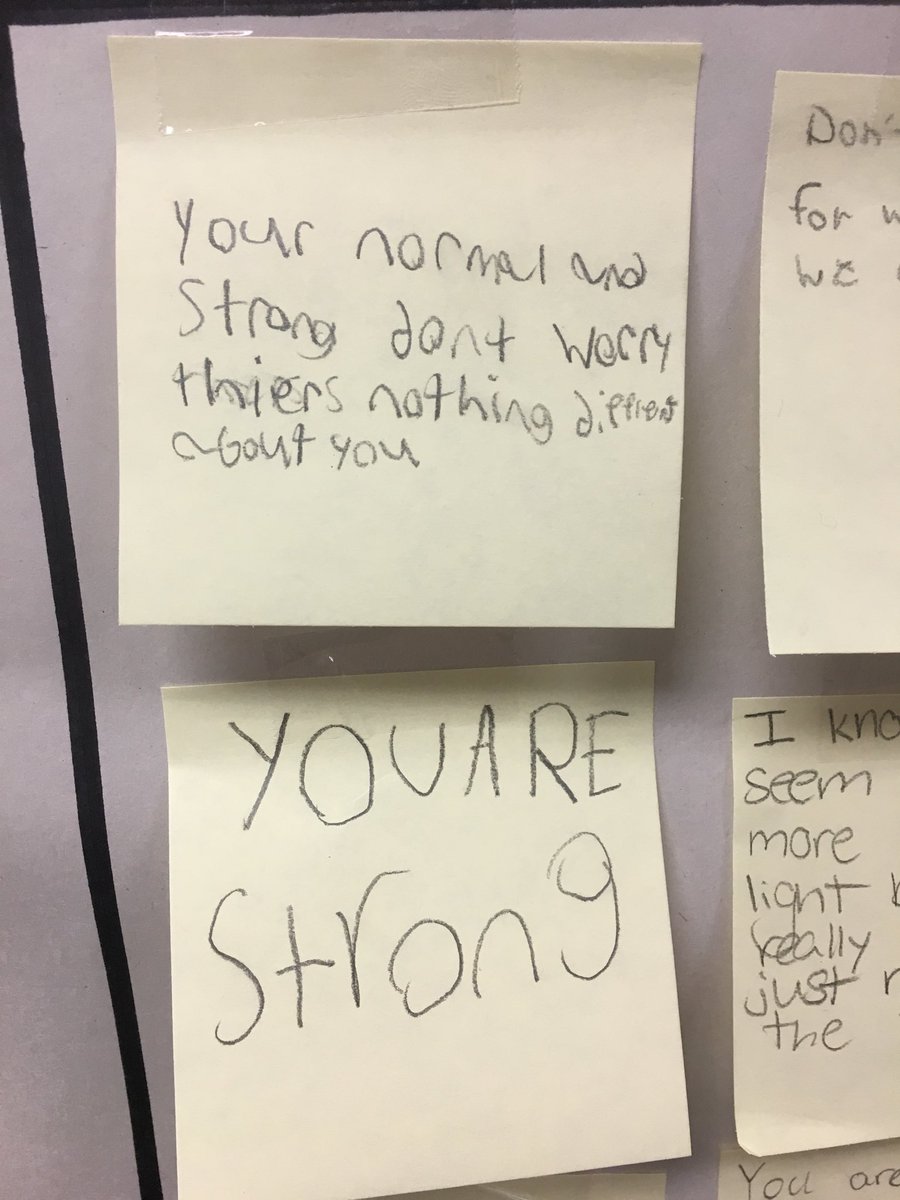 Your normal and
Strong dont worry
thiers nothing diffrent
about you
YOU ARE
Strong
Don'
for
we
I kno
seem
more
light
really
just
the
You are